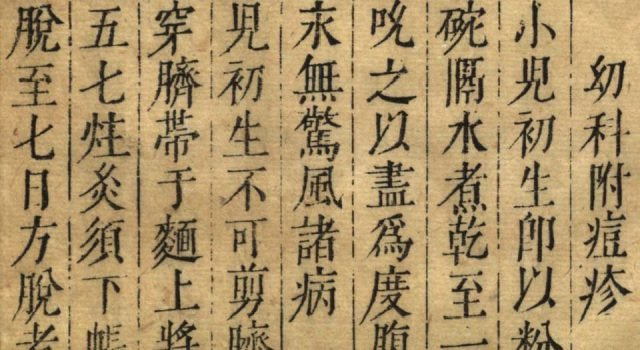 幼科附痘疹
小児初生卽以粉
碗隔水煮乾至一
吮之以盡爲度腹
永無驚風諸病
児初生不可剪臍
穿臍帶于麵上將
五七炷灸須下
脫至七日方脫者